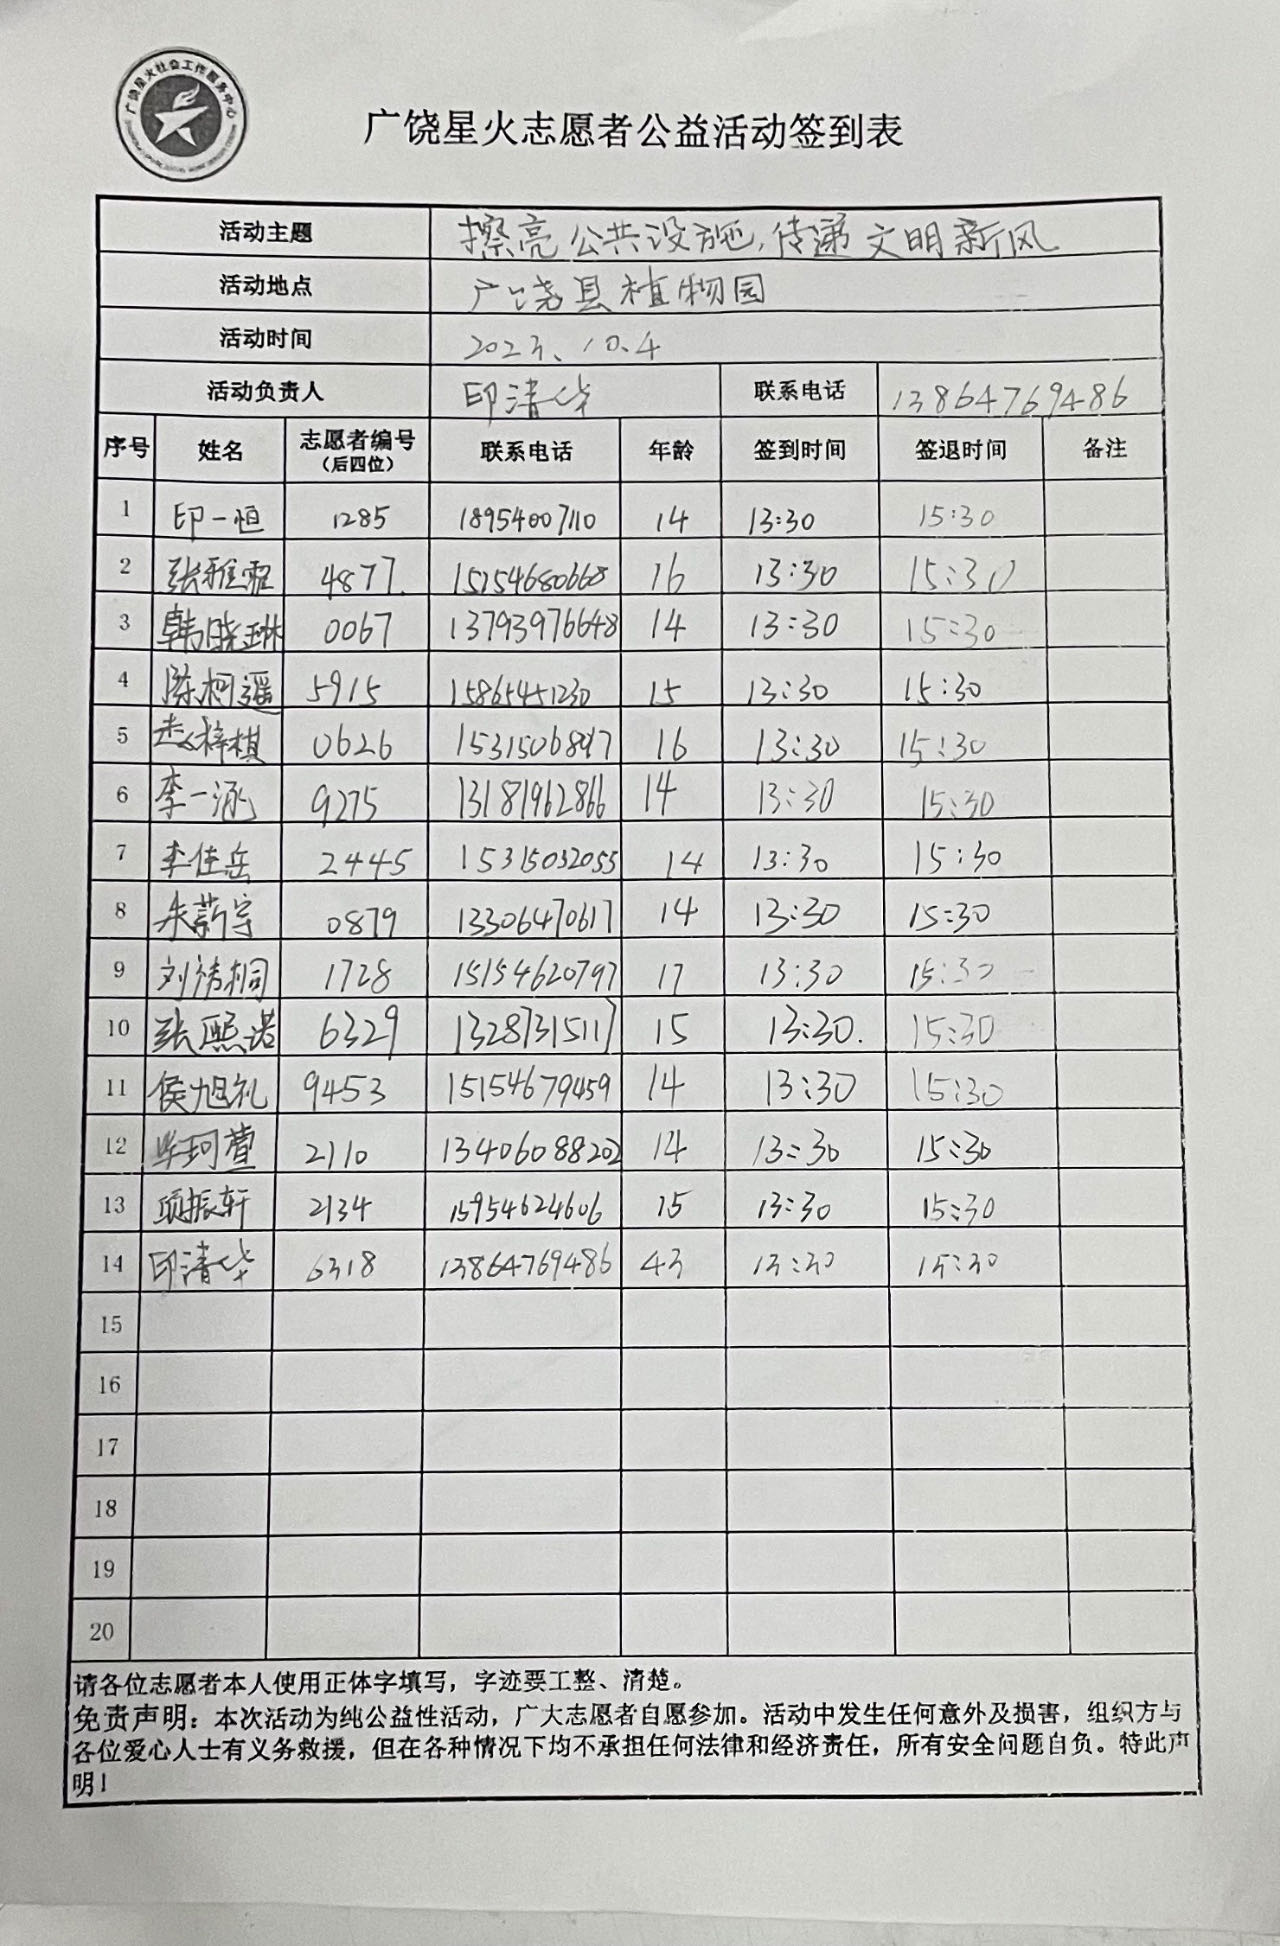 广饶星火社会工作服务中心
广饶星火志愿者公益活动签到表
活动主题 擦亮公共设施,传递文明新风
活动地点 广饶县植物园
活动时间 2023.10.4
活动负责人 印清华 联系电话 13864769486
序号 姓名 志愿者编号 (后四位) 联系电话 年龄 签到时间 签退时间 备注
1 印一恒 1285 18954007110 14 13:30 15:30
2 张雅霏 4877. 15154680668 16 13:30 15:30
3 韩晓琳 0067 13793976648 14 13:30 15:30
4 陈柯遥 5915 15865451230 15 13:30 15:30
5 赵梓棋 0626 1531506897 16 13:30 15:30
6 李一涵 9275 13181962866 14 13:30 15:30
7 李佳岳 2445 15315032055 14 13:30 15:30
8 朱薪宇 0879 13306470617 14 13:30 15:30
9 刘祎桐 1728 15154620797 17 13:30 15:30
10 张熙诺 6329 13287315117 15 13:30. 15:30
11 侯旭礼 9453 15154679459 14 13:30 15:30
12 毕珂萱 2110 13406088202 14 13:30 15:30
13 项振轩 2134 15954624606 15 13:30 15:30
14 印清华 6318 13864769486 43 13:30 15:30
15
16
17
18
19
20
请各位志愿者本人使用正体字填写，字迹要工整、清楚。
免责声明：本次活动为纯公益性活动，广大志愿者自愿参加。活动中发生任何意外及损害，组织方与
各位爱心人士有义务救援，但在各种情况下均不承担任何法律和经济责任，所有安全问题自负。特此声
明！